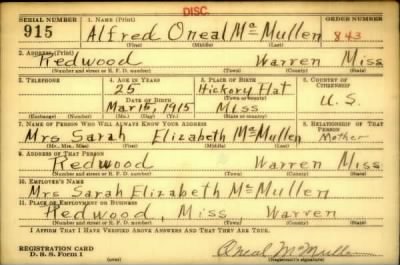 DISC.
SERIAL NUMBER 1. NAME (Print) ORDER NUMBER
915 Alfred Oneal McMullen 843
(First) (Middle) (Last)
2. ADDRESS (Print)
Redwood Warren Miss
(Number and street or R. F. D. number) (Town) (County) (State)
3. TELEPHONE 4. AGE IN YEARS 5. PLACE OF BIRTH 6. COUNTRY OF CITIZENSHIP
25 Hickory Flat
DATE OF BIRTH (Town or county) U.S.
Mar 15, 1915 Miss
(Exchange) (Number) (Mo.) (Day) (Yr.) (State or country)
7. NAME OF PERSON WHO WILL ALWAYS KNOW YOUR ADDRESS 8. RELATIONSHIP OF THAT PERSON
Mrs Sarah Elizabeth McMullen Mother
(Mr., Mrs., Miss) (First) (Middle) (Last)
9. ADDRESS OF THAT PERSON
Redwood Warren Miss
(Number and street or R. F. D. number) (Town) (County) (State)
10. EMPLOYER'S NAME
Mrs Sarah Elizabeth McMullen
11. PLACE OF EMPLOYMENT OR BUSINESS
Redwood, Miss Warren
(Number and street or R. F. D. number) (Town) (County) (State)
I AFFIRM THAT I HAVE VERIFIED ABOVE ANSWERS AND THAT THEY ARE TRUE.
REGISTRATION CARD
D. S. S. Form 1 Oneal McMullen
(over) (Registrant's signature)